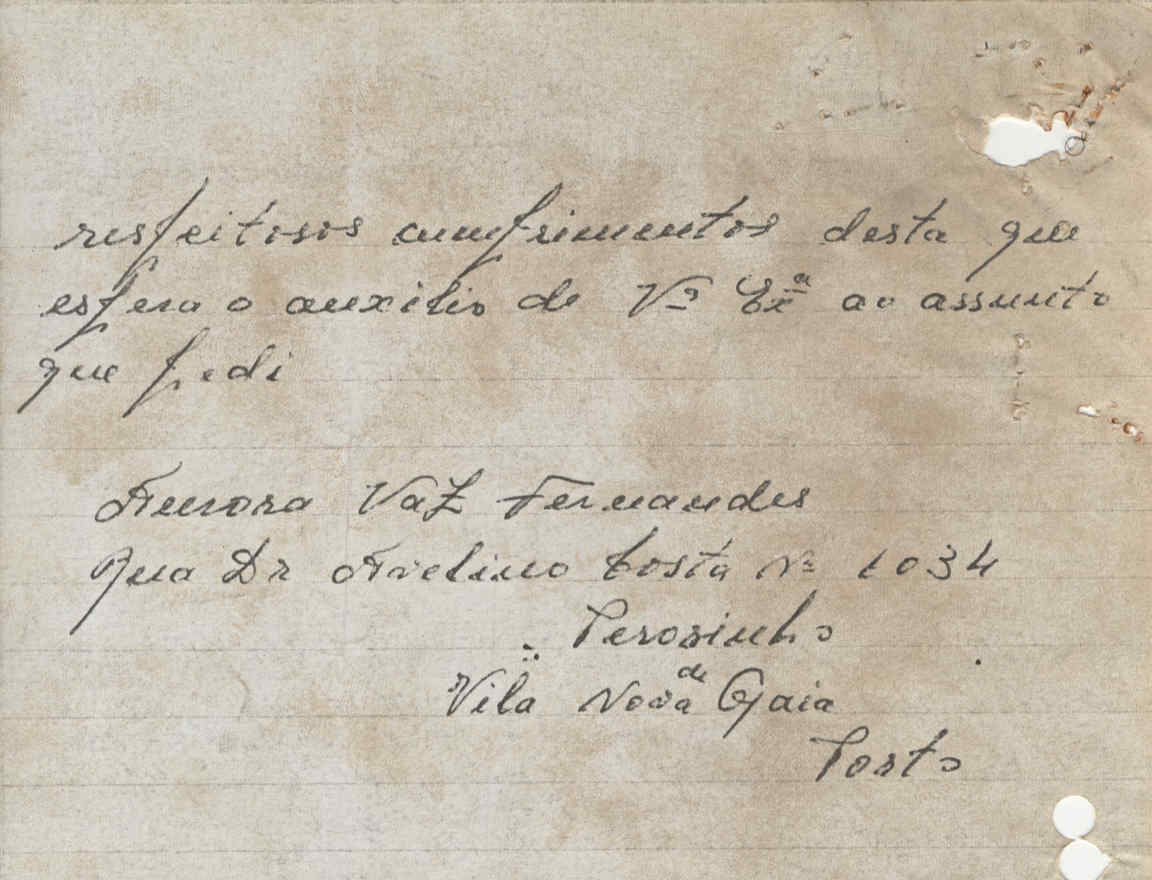 respeitosos cumprimentos desta que
espera o auxilio de Vª Exª ao assunto
que pedi
Aurora Vaz Fernandes
Rua Dr Avelino Costa Nº 1034
Perosinho
Vila Nova de Gaia
Porto